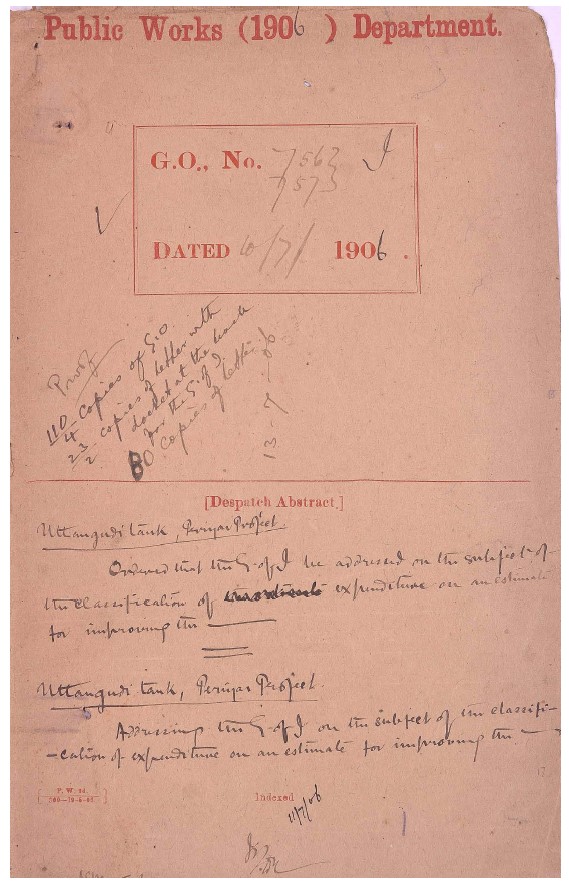 Public Works (1906) Department.
G.O., No. 7562 I
7573
DATED 10/7/ 1906.
Proof
110 copies of G.O.
copies of letter with
docket at the back
for the G. of I.
80 copies of letter
13-7-06
[Despatch Abstract.]
Uttangudi tank, Periyar Project.
Ordered that the G. of I be addressed on the subject of
the classification of expenditure on an estimate
for improving the —
Uttangudi tank, Periyar Project.
Addressing the G. of I on the subject of the classifi-
-cation of expenditure on an estimate for improving the —
P. W. 94.
Indexed
11/7/06